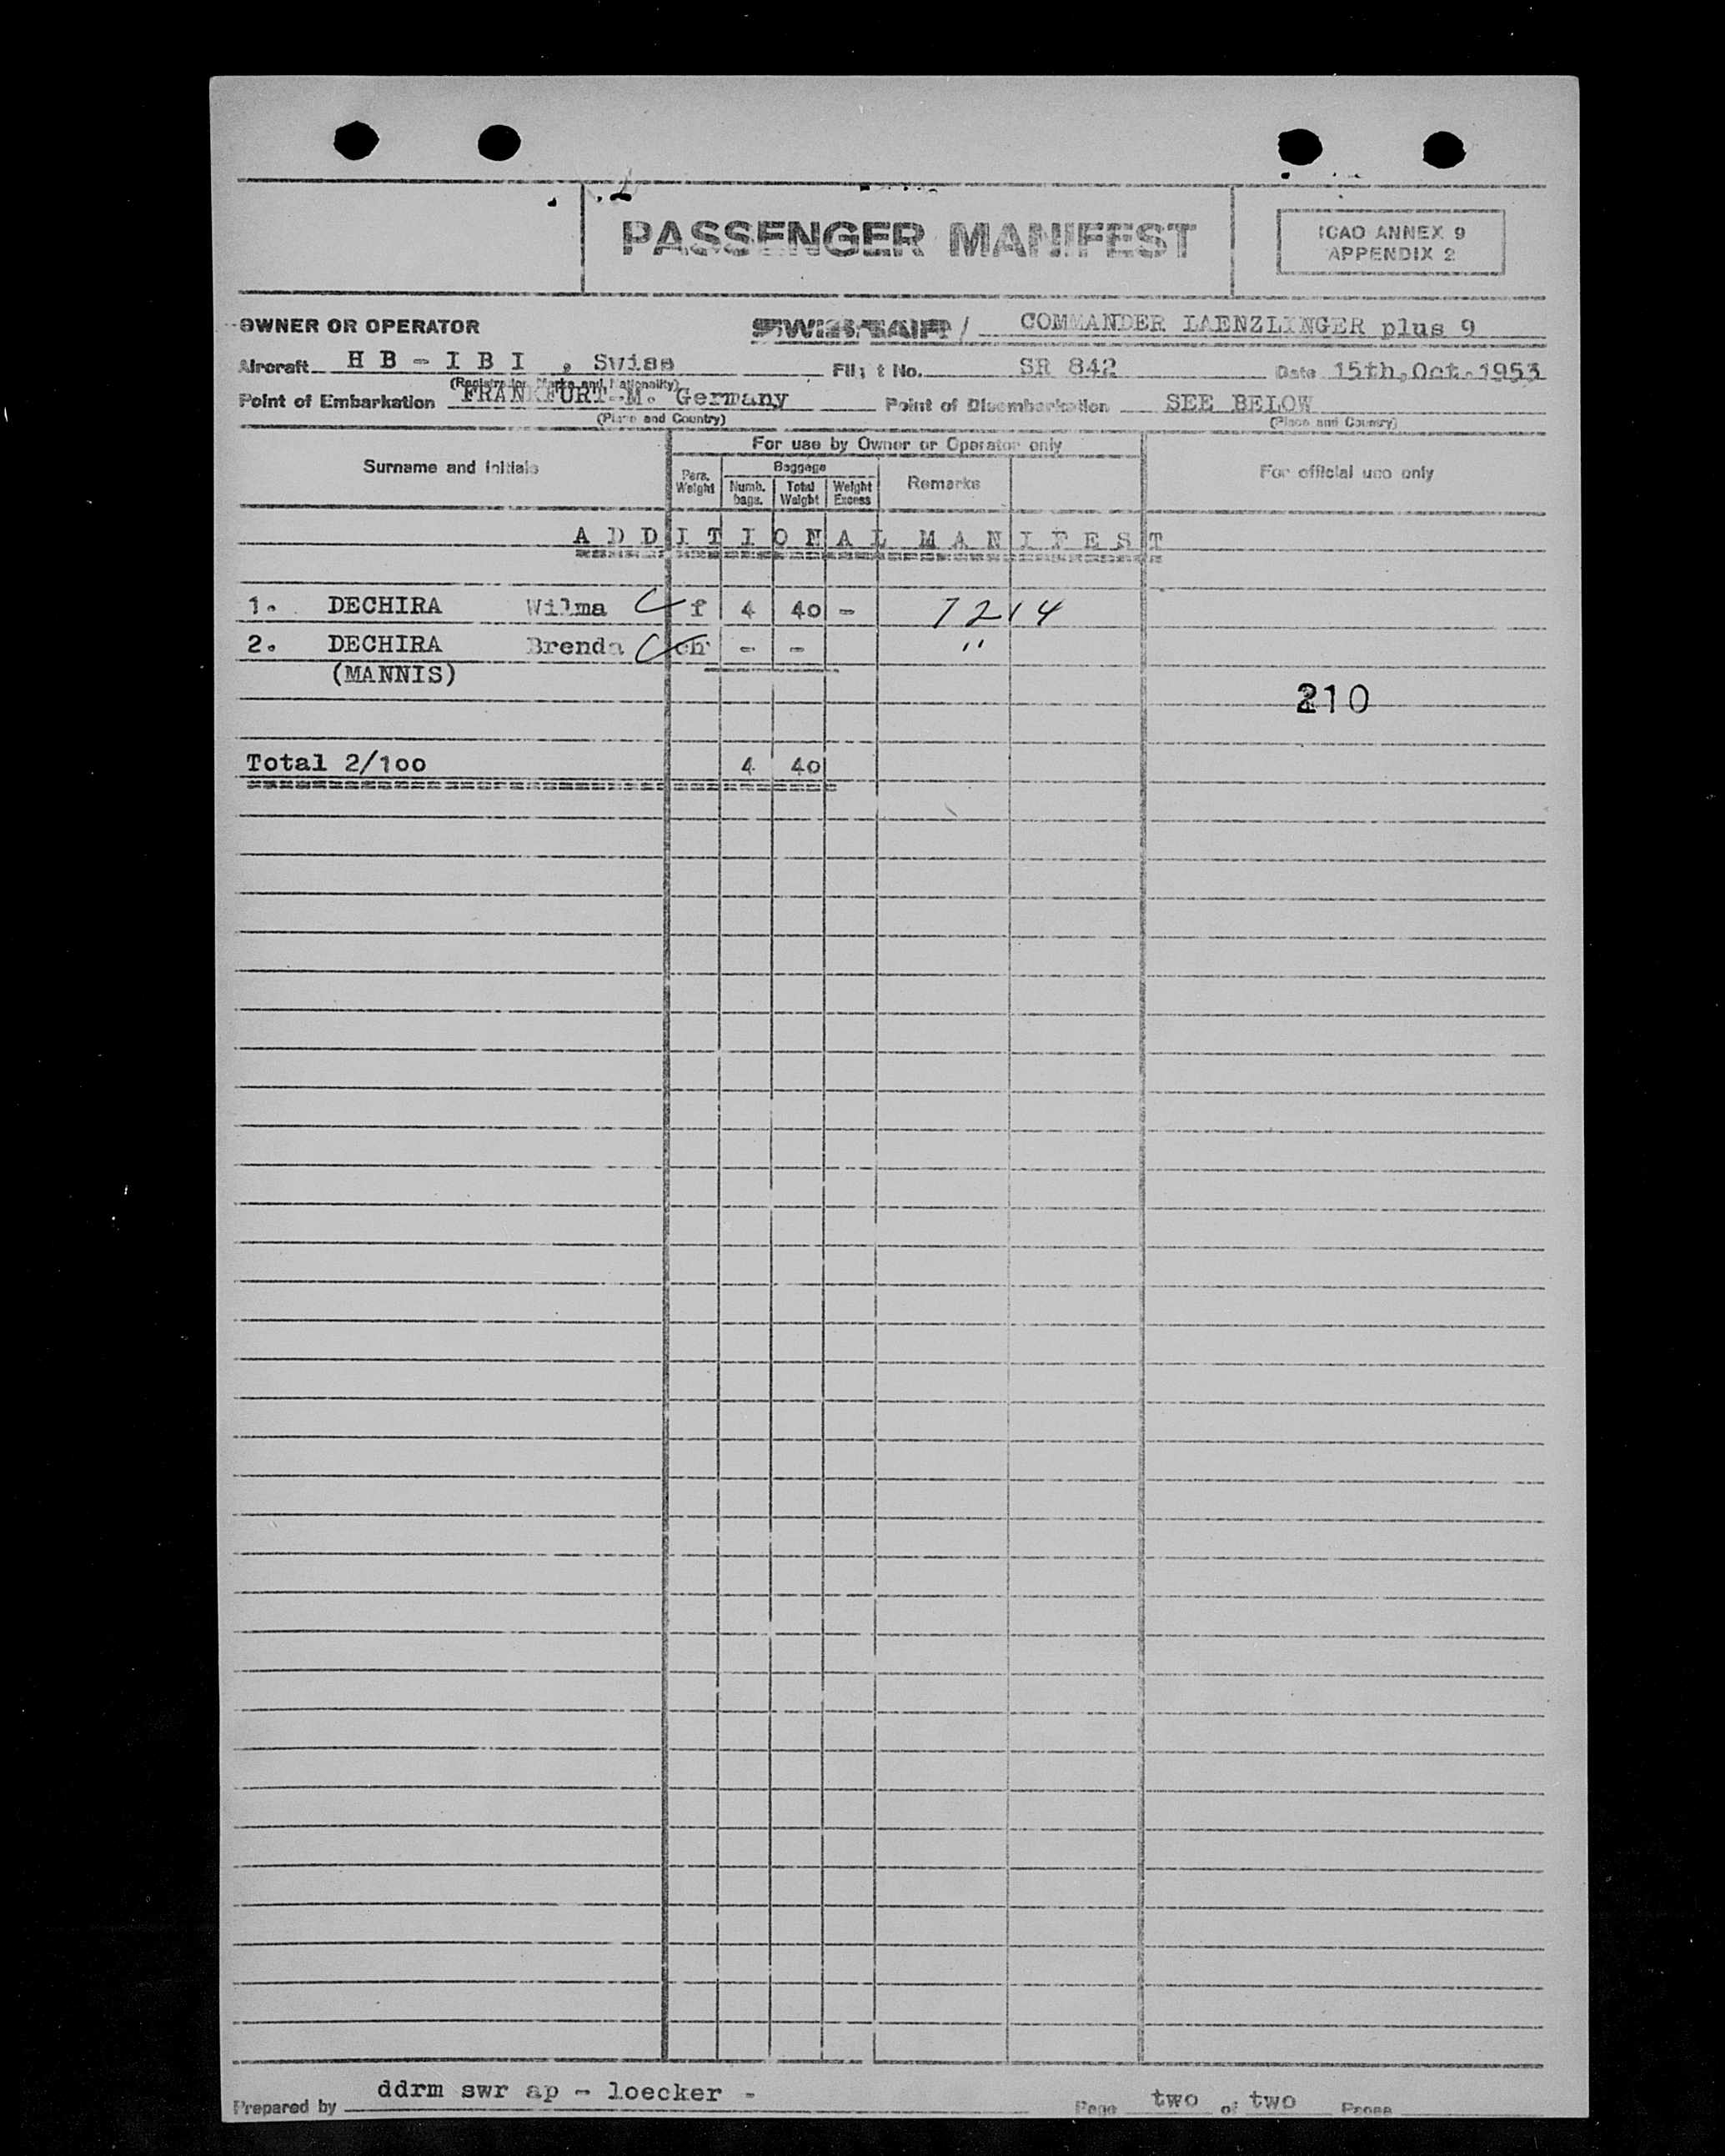 PASSENGER MANIFEST
ICAO ANNEX 9
APPENDIX 2
OWNER OR OPERATOR SWISSAIR / COMMANDER LAENZLINGER plus 9
Aircraft H B - I B I , Swiss Flight No. SR 842 Date 15th,Oct.1953
(Registration Marks and Nationality)
Point of Embarkation FRANKFURT-M. Germany Point of Disembarkation SEE BELOW
(Place and Country) (Place and Country)
For use by Owner or Operator only
Surname and Initials Pers. Weight Baggage Numb. bags. Total Weight Weight Excess Remarks For official use only
A D D I T I O N A L M A N I F E S T
1. DECHIRA Wilma f 4 40 - 7214
2. DECHIRA Brenda ch - - "
(MANNIS)
210
Total 2/100 4 40
Prepared by ddrm swr ap - loecker - Page two of two Pages